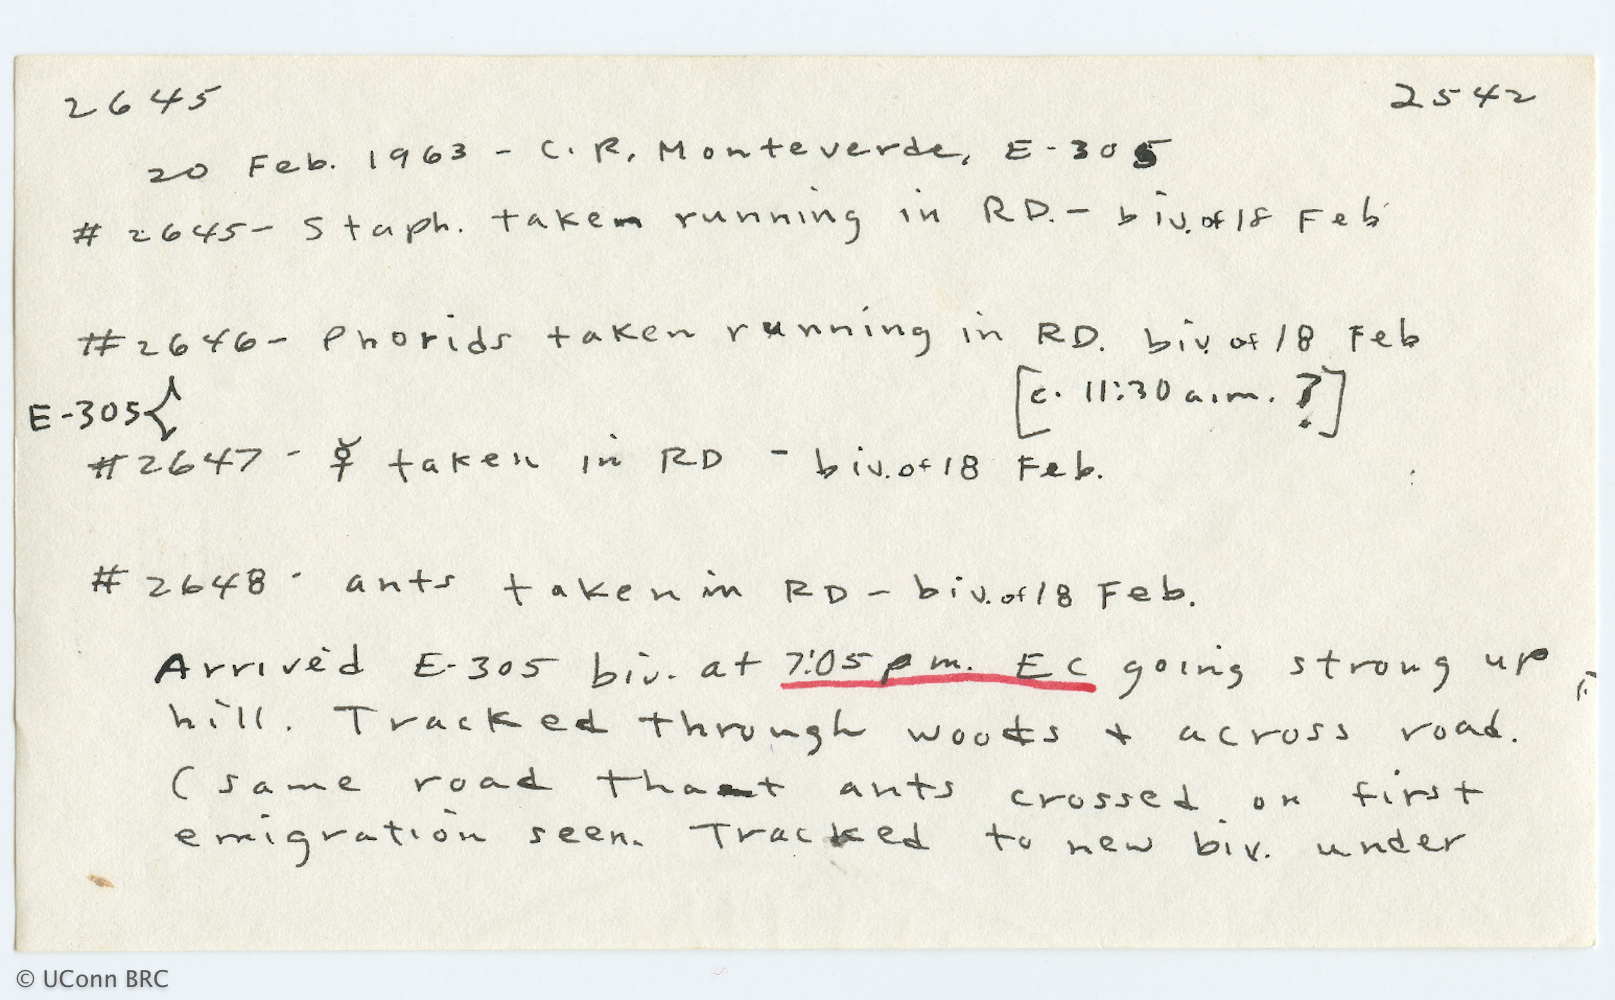 2645 2542
20 Feb. 1963 - C. R. Monteverde, E-305
# 2645 - Staph. taken running in RD. - biv. of 18 Feb
# 2646 - Phorids taken running in RD. biv. of 18 Feb
[c. 11:30 a.m. ?]
E-305 {
# 2647 - ☿ taken in RD - biv. of 18 Feb.
# 2648 - ants taken in RD - biv. of 18 Feb.
Arrived E-305 biv. at 7:05 pm. EC going strong up
hill. Tracked through woods + across road.
(same road that ants crossed on first
emigration seen. Tracked to new biv. under
© UConn BRC